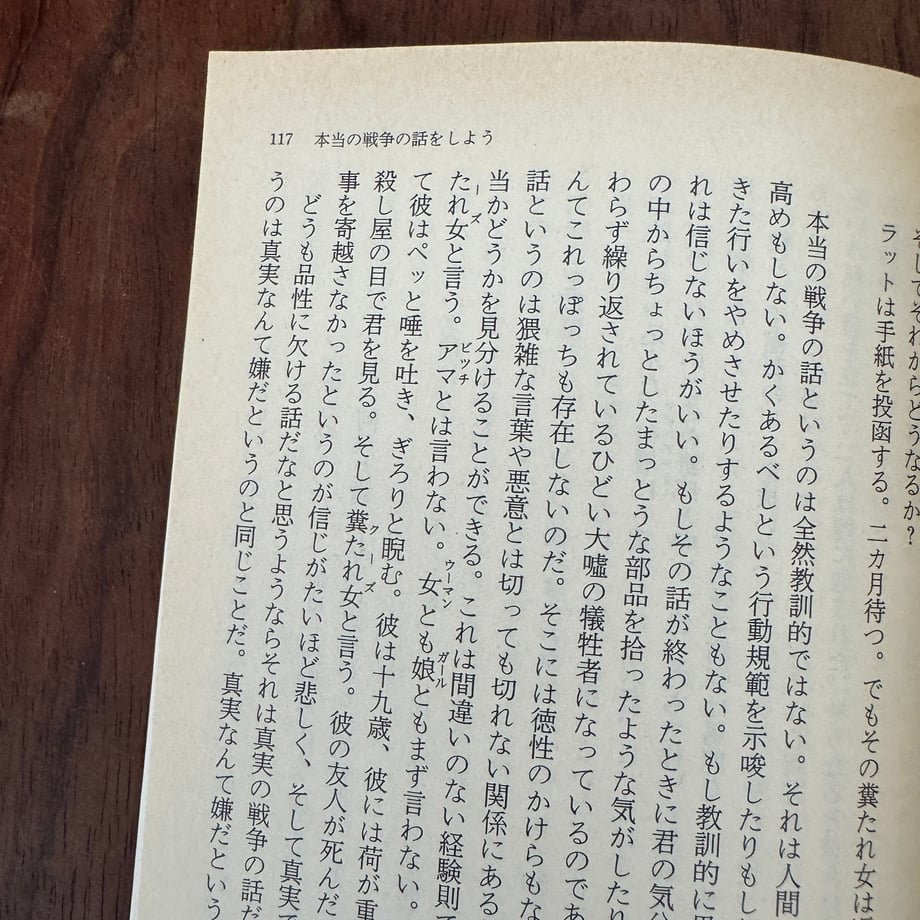 117 本当の戦争の話をしよう
そしてそれからどうなるか?
ラットは手紙を投函する。二カ月待つ。でもその糞たれ女は
本当の戦争の話というのは全然教訓的ではない。それは人間
高めもしない。かくあるべしという行動規範を示唆したりもし
きた行いをやめさせたりするようなこともない。もし教訓的に
れは信じないほうがいい。もしその話が終わったときに君の気分
の中からちょっとしたまっとうな部品を拾ったような気がしたり
わらず繰り返されているひどい大嘘の犠牲者になっているのであ
んてこれっぽっちも存在しないのだ。そこには徳性のかけらもな
話というのは猥雑な言葉や悪意とは切っても切れない関係にある
当かどうかを見分けることができる。これは間違いのない経験則で
たれ女と言う。アマとは言わない。女とも娘ともまず言わない。
て彼はペッと唾を吐き、ぎろりと睨む。彼は十九歳、彼には荷が重
殺し屋の目で君を見る。そして糞たれ女と言う。彼の友人が死んだ
事を寄越さなかったというのが信じがたいほど悲しく、そして真実で
どうも品性に欠ける話だなと思うようならそれは真実の戦争の話だ
うのは真実なんて嫌だというのと同じことだ。真実なんて嫌だという